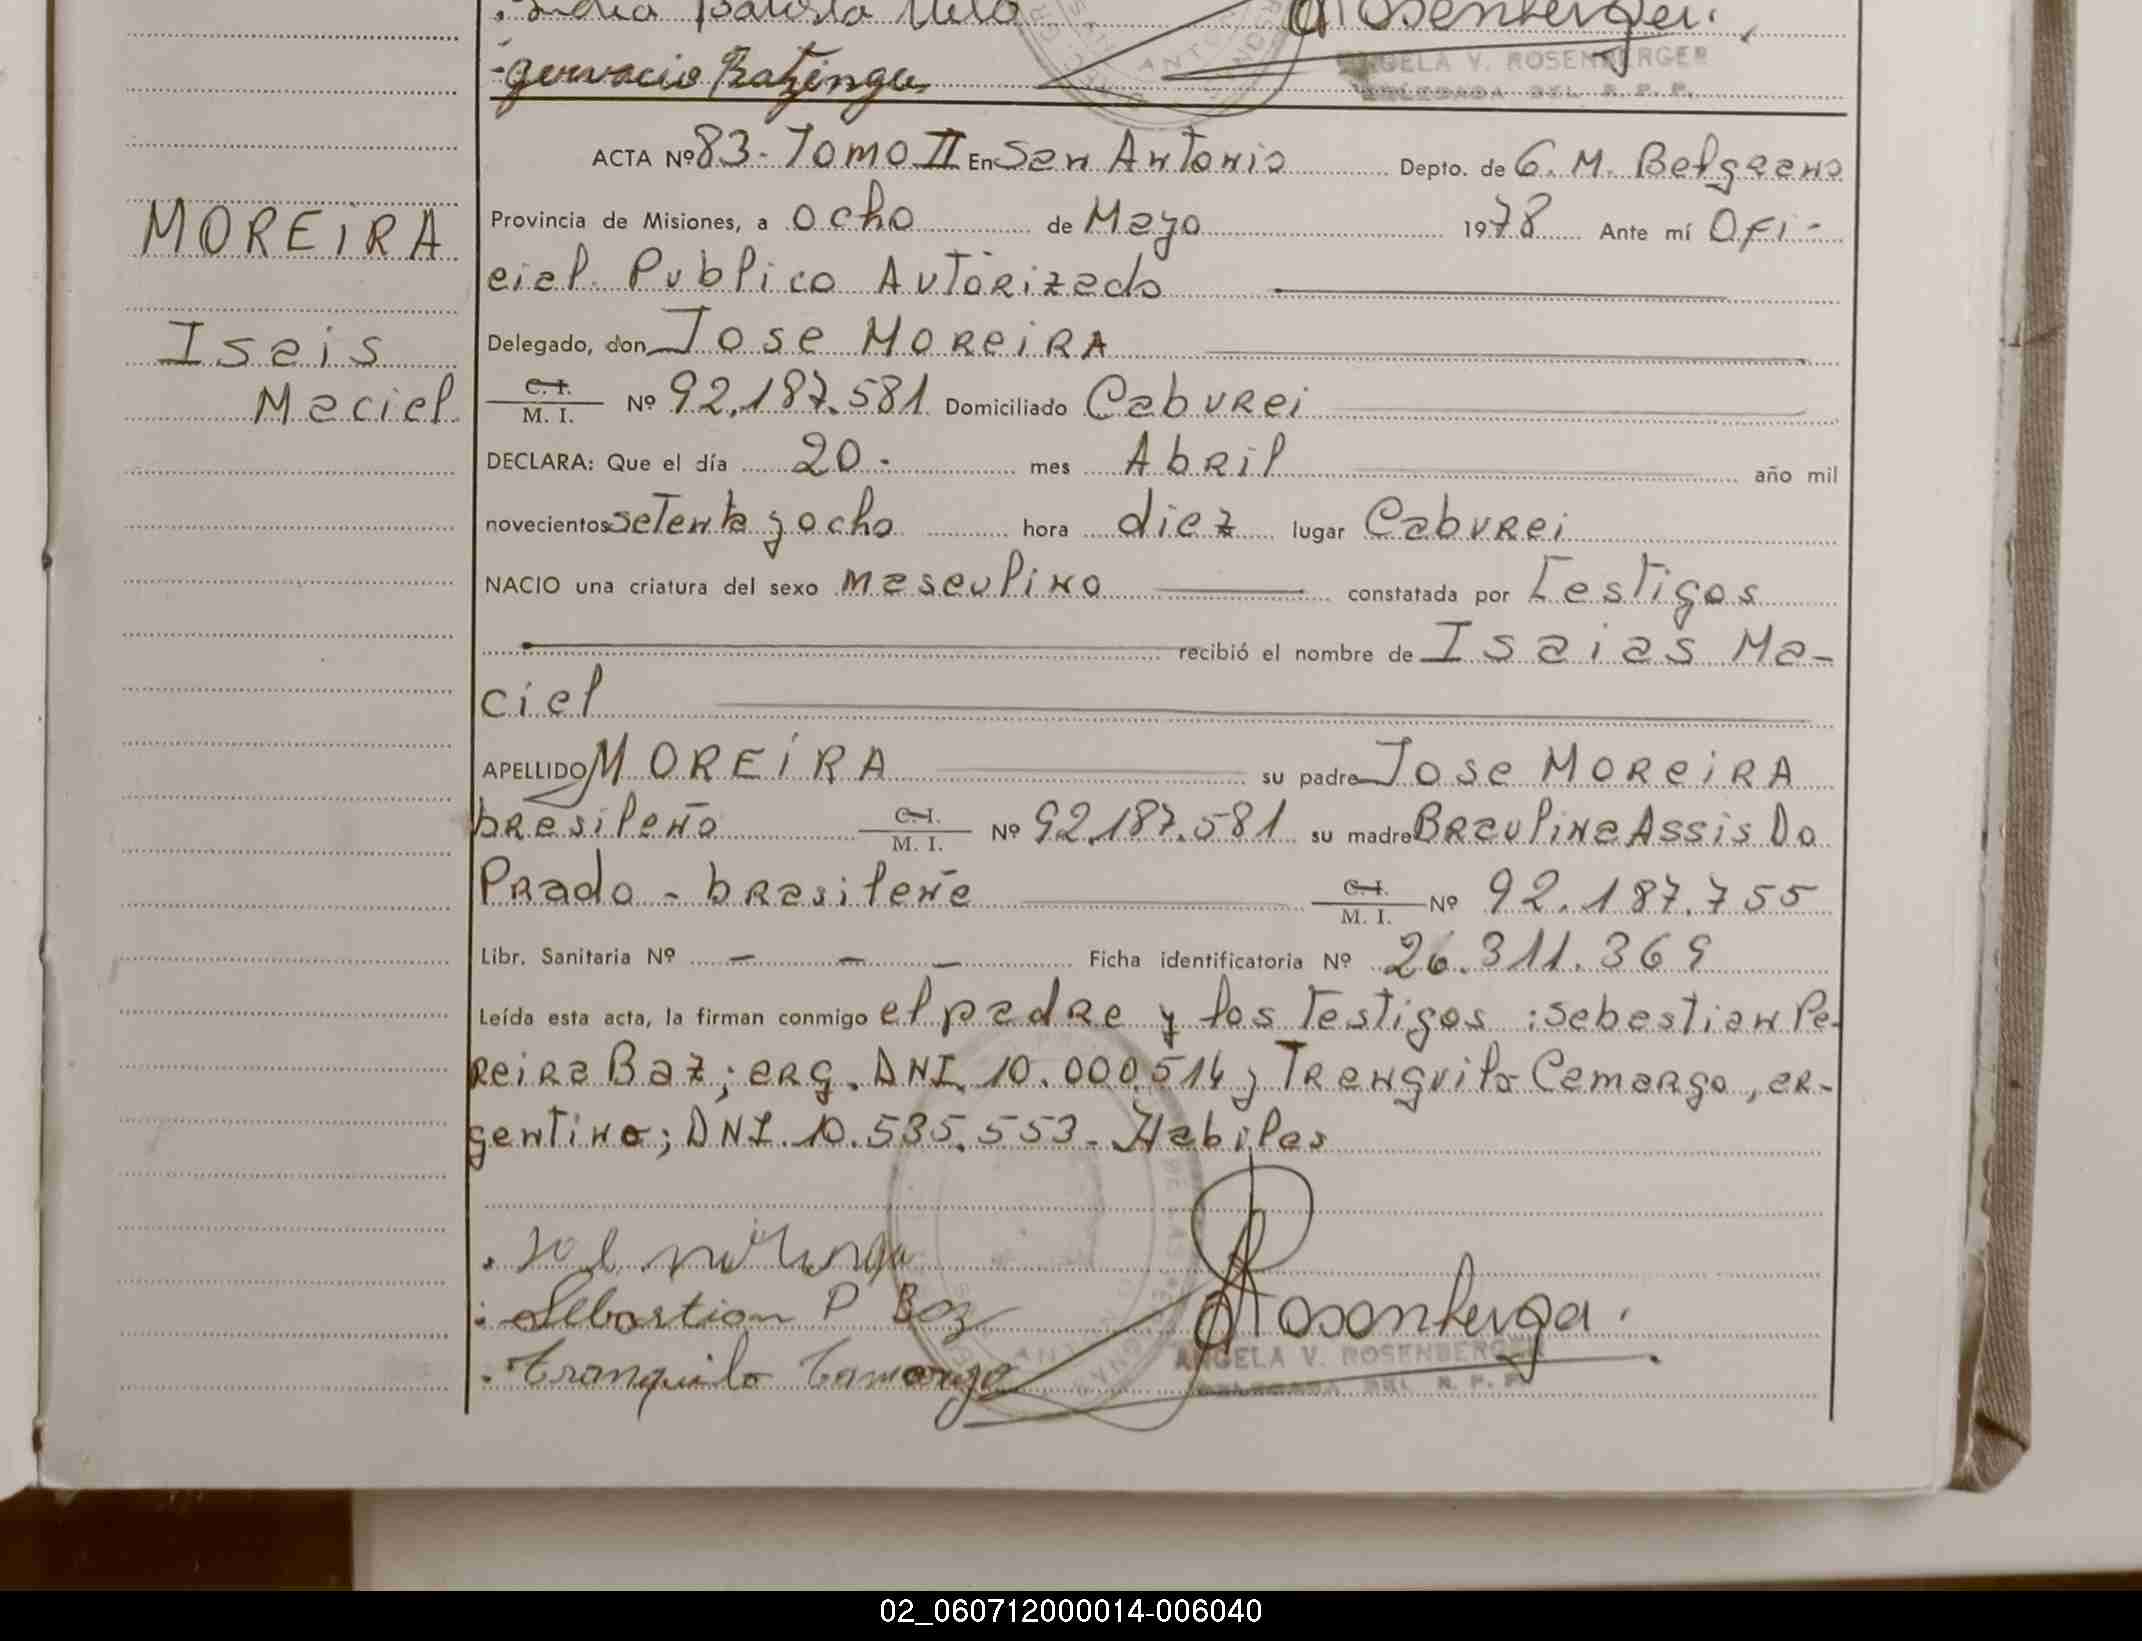 Gervacio
ANGELA V. ROSENBERGER
DELEGADA DEL R. P. P.
MOREIRA
Isais
Maciel
ACTA Nº 83 - Tomo II En San Antonio Depto. de G. M. Belgrano
Provincia de Misiones, a ocho de Mayo 1978 Ante mí Ofi-
cial Publico Autorizado
Delegado, don Jose MOREIRA
C. I. / M. I. Nº 92.187.581 Domiciliado Caburei
DECLARA: Que el día 20 - mes Abril año mil
novecientos setenta y ocho hora diez lugar Caburei
NACIO una criatura del sexo masculino constatada por Testigos
recibió el nombre de Isaias Ma-
ciel
APELLIDO MOREIRA su padre Jose MOREIRA
brasileño C. I. / M. I. Nº 92.187.581 su madre Braulina Assis Do
Prado - brasileña C. I. / M. I. Nº 92.187.755
Libr. Sanitaria Nº - - - Ficha identificatoria Nº 26.311.369
Leída esta acta, la firman conmigo el padre y los Testigos : Sebastian Pe-
reira Baz; arg. DNI. 10.000.514 y Tranquilo Camargo, ar-
gentino; DNI. 10.535.553 - Habiles
Sebastian P Baz
Rosenberger.
Tranquilo Camargo
ANGELA V. ROSENBERGER
DELEGADA DEL R. P. P.
02_060712000014-006040